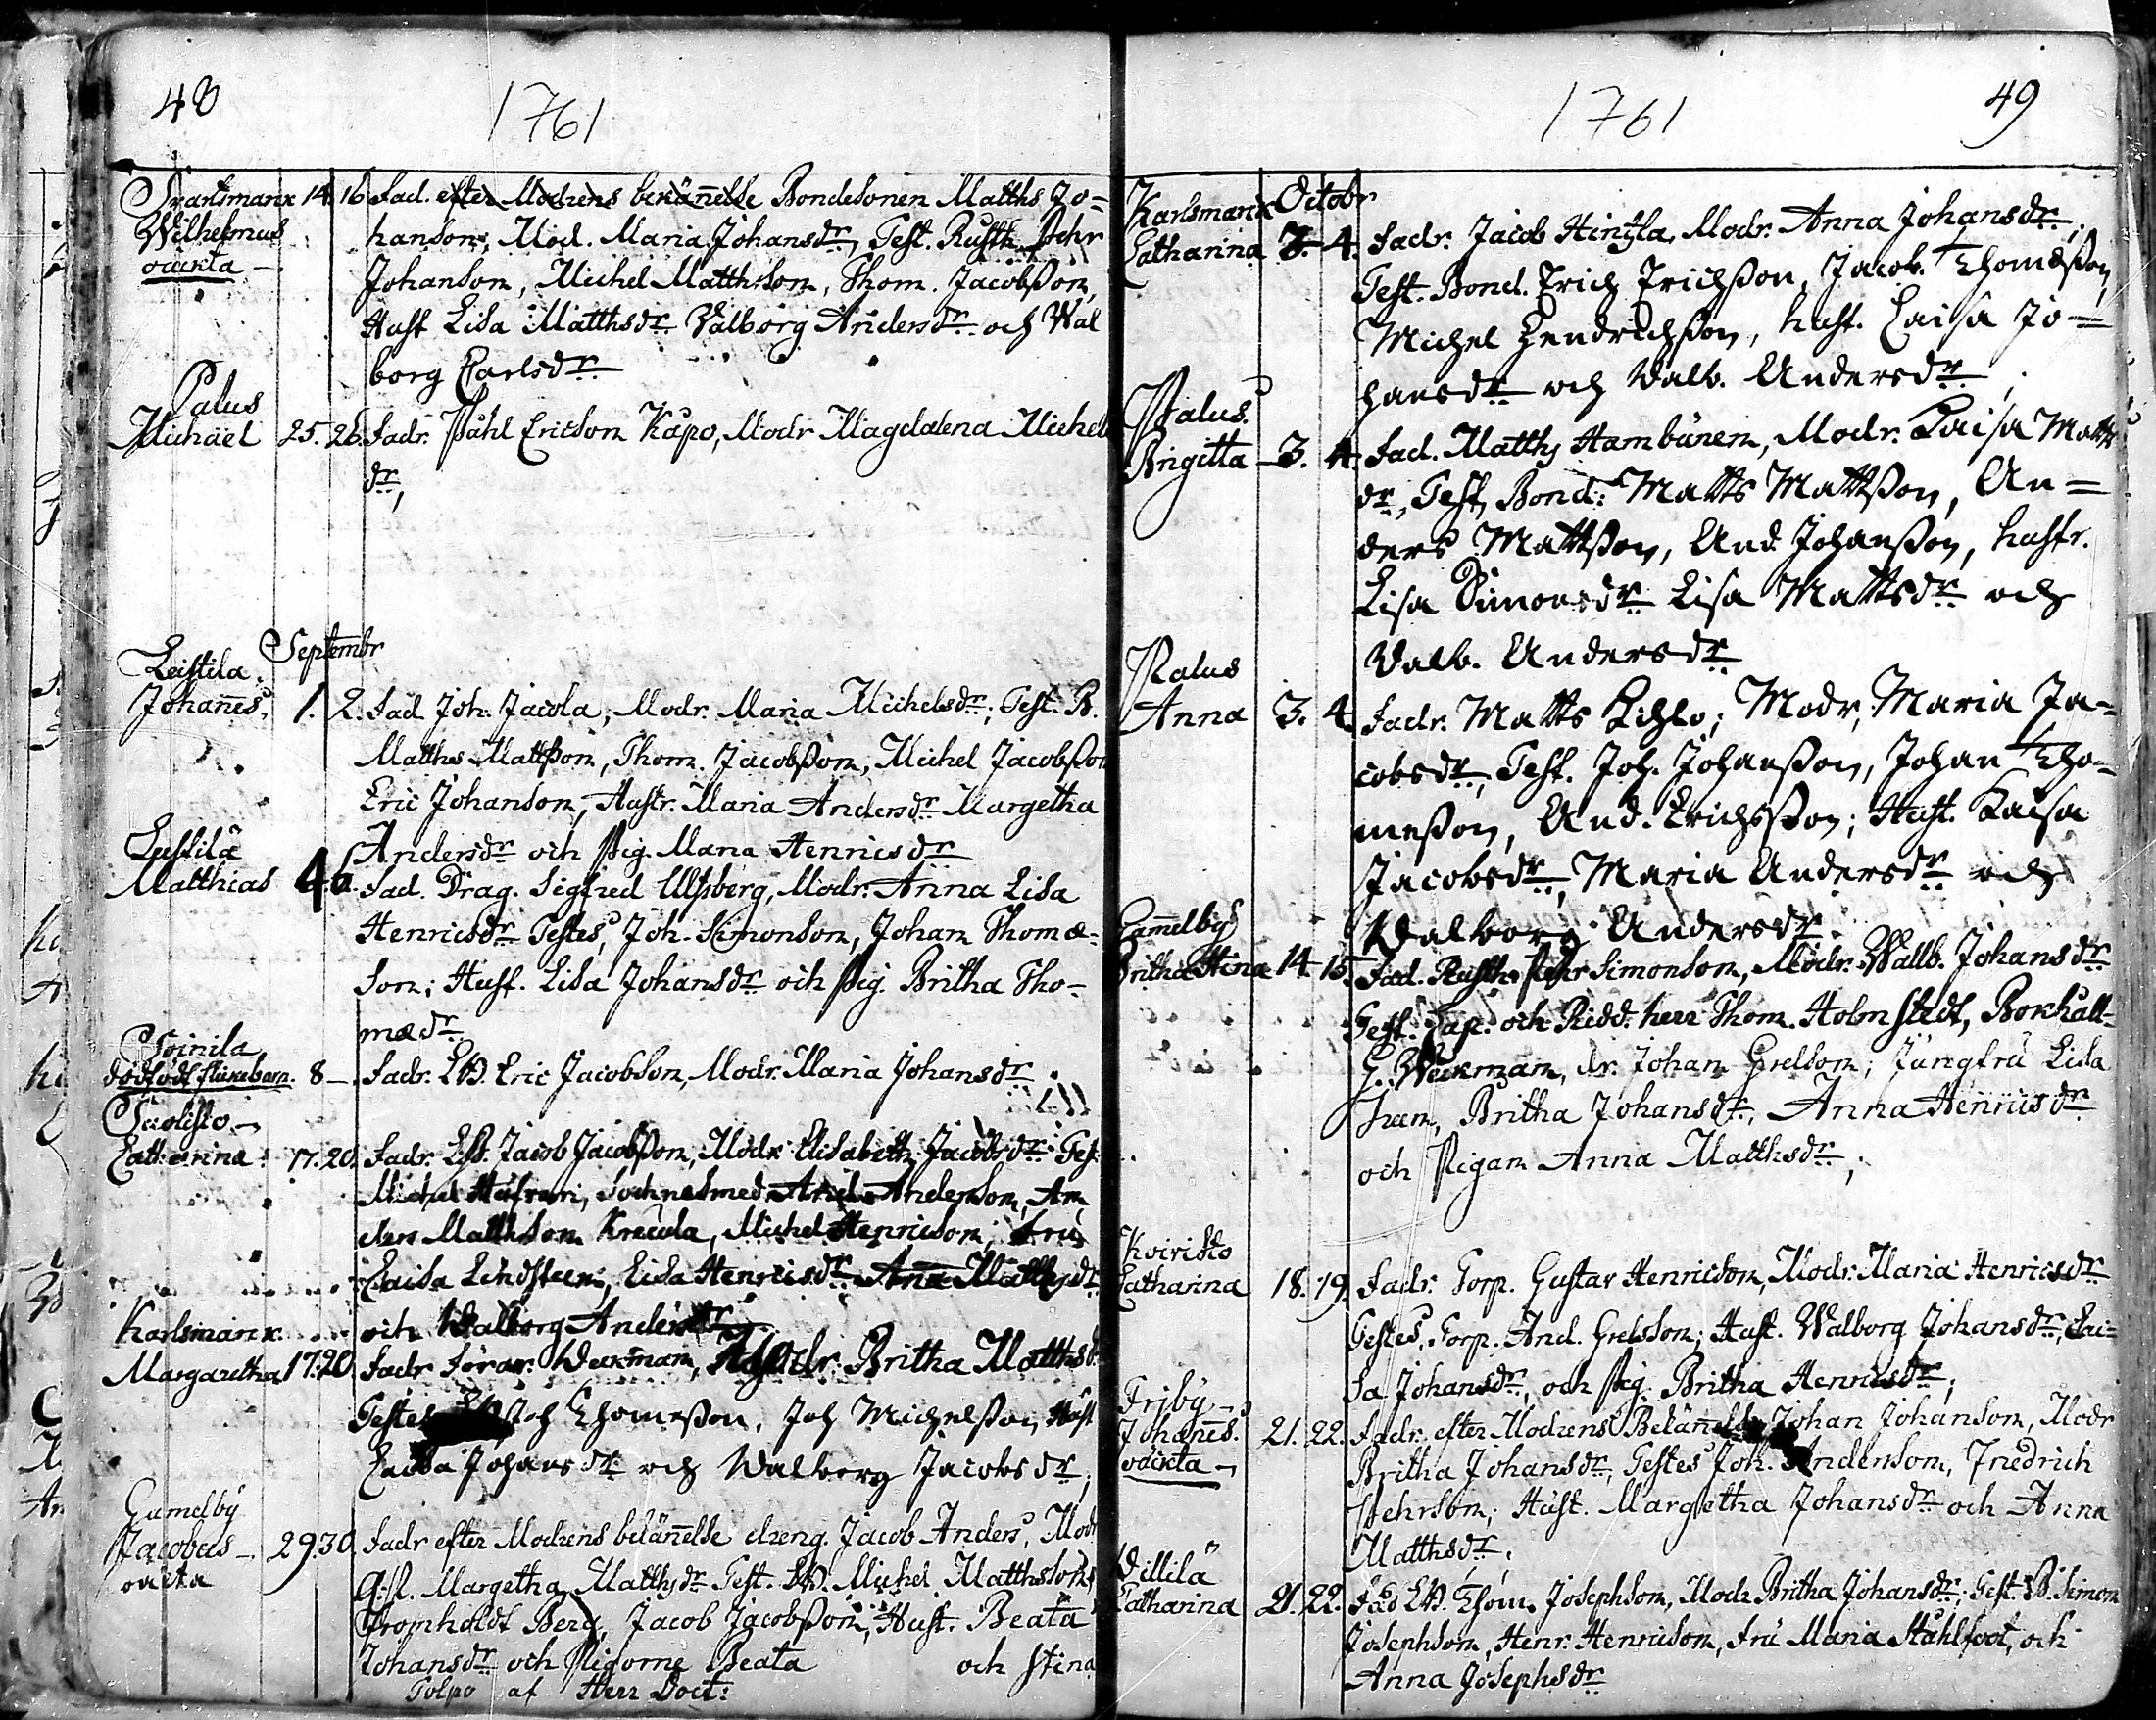 48
1761
Svartsmarx 14. 16. Fad. efter Modrens bekänelse Bondesonen Matths Jo=
Wilhelmus hanson, Mod. Maria Johansdr, Test. Rusth. Pehr
oäckta Johanson, Michel Matthsson, Thom. Jacobsson,
Hust Lisa Matthsdr Valborg Andersdr och Wal
borg Carlsdr
Palus
Michaël 25. 26. Fadr. Påhl Ericson Kåpo, Modr Magdalena Michels
dr,
Septembr
Leistila
Johanes 1. 2. Fad Joh. Jacola, Modr. Maria Michelsdr; Test. B.
Matths Mattsson, Thom. Jacobsson, Michel Jacobsson
Eric Johanson, Hustr. Maria Andersdr Margetha
Andersdr och Pig. Maria Henricsdr
Leistilä
Matthias 4. Fad. Drag. Sigfred Ulfsberg, Modr. Anna Lisa
Henricsdr Testes, Joh. Simonson, Johan Thomæ-
son; Hust. Lisa Johansdr och Pig. Britha Tho-
mædr
Soinila
dödfödt flickebarn. 8 Fadr. LB. Eric Jacobson, Modr. Maria Johansdr
Catharina 17. 20. Fadr. LB. Jacob Jacobsson, Modr Elisabeth Jacobsdr Tes.
Michel Sochnesmed Anderson, An
ders Matthson Kreula, Michel Henricson, Fru
Caisa Lindsteen, Lisa Henricsdr Anna Matthsdr
Karlsmarx och Walborg Andersdr
Margaretha 17. 20. Fadr Jöran Weckman, Modr. Britha Matthsdr
Testes Joh Thomesson, Joh Michelsson, Hust
Caisa Johansdr och Walborg Jacobsdr,
Gamelby
Jacobus 29. 30. Fadr efter Modrens bekänelse dreng. Jacob Anders, Modr
oäcta Q:fl. Margetha Matthsdr Test. LB. Michel Matthsson
Tromholdt Berg, Jacob Jacobsson, Hust. Beata
Johansdr och Pigorne Beata och Stina
Tolpo af Herr Doct:
1761
49
Karlsmarx Octobr
Catharina 3. 4. Fadr. Jacob Hintzla, Modr. Anna Johansdr;
Test. Bond. Erich Erichsson, Jacob Thomæsson,
Michel Hendrichsson, hust. Caisa Jo=
hansdr och Valb. Andersdr;
Palus.
Brigitta 3. 4. Fad. Matths Hambünen, Modr. Kaisa Matts
dr, Test, Bond: Matts Mattsson, An=
ders Mattsson, And. Johansson, hustr.
Lisa Simonsdr Lisa Mattsdr och
Valb. Andersdr
Palus
Anna 3. 4. Fadr. Matts Kihlo; Modr, Maria Ja=
cobsdr, Test. Joh. Johansson, Johan Tho-
messon, And. Erichsson; Hust. Kaisa
Jacobsdr, Maria Andersdr och
Walborg Andersdr.
Gamelby
Britha Stina 14. 15. Fad. Rusth. Pehr Simonson, Modr. Wallb. Johansdr
Test. Cap. och Ridd. herr Thom. Holmstedt, Bokhåll-
G. Weckman, dr. Johan Grelson; Jungfru Lisa
Britha Johansdr, Anna Henricsdr
och Pigan Anna Matthsdr;
Koiristo
Catharina 18. 19. Fadr. Torp. Gustav Henricson, Modr. Maria Henricsdr
Testes, Torp. And. Grelson; Hust. Walborg Johansdr, Cai=
sa Johansdr, och Pig. Britha Henricsdr;
Friby
Johanes. 21. 22. Fadr. efter Modrens Bekänelse Johan Johanson, Modr
oäckta Britha Johansdr, Testes Joh. Anderson, Friedrich
Pehrson; Hust. Margetha Johansdr och Anna
Matthsdr;
Villilä
Catharina 21. 22. Fad LB. Thom. Josephson, Modr Britha Johansdr, Test. B. Simon
Josephson, Henr. Henricson, Fru Maria Stählfoot, och
Anna Josephsdr